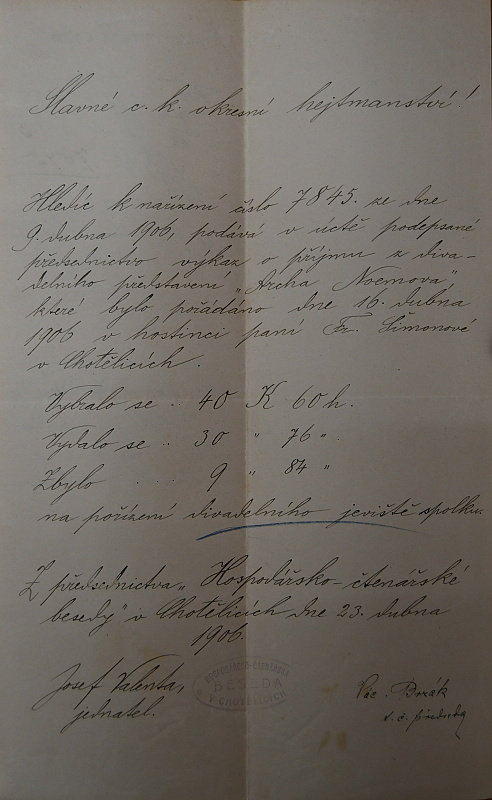 Slavné c. k. okresní hejtmanství!
Hledíc k nařízení číslo 7845. ze dne
9. dubna 1906, podává v úctě podepsané
předsednictvo výkaz o příjmu z diva-
delního představení „Archa Noemova"
které bylo pořádáno dne 16. dubna
1906 v hostinci paní Fr. Šimonové
v Chotělicích.
Vybralo se .. 40 K 60 h.
Vydalo se .. 30 " 76 " .
Zbylo . . . . 9 " 84 "
na pořízení divadelního jeviště spolku.
Z předsednictva „Hospodářsko-čtenářské
besedy" v Chotělicích dne 23. dubna
1906.
Josef Valenta,
jednatel.
HOSPODÁŘSKO-ČTENÁŘSKÁ
BESEDA
V CHOTĚLICÍCH
Vác. Borák
t. č. předseda